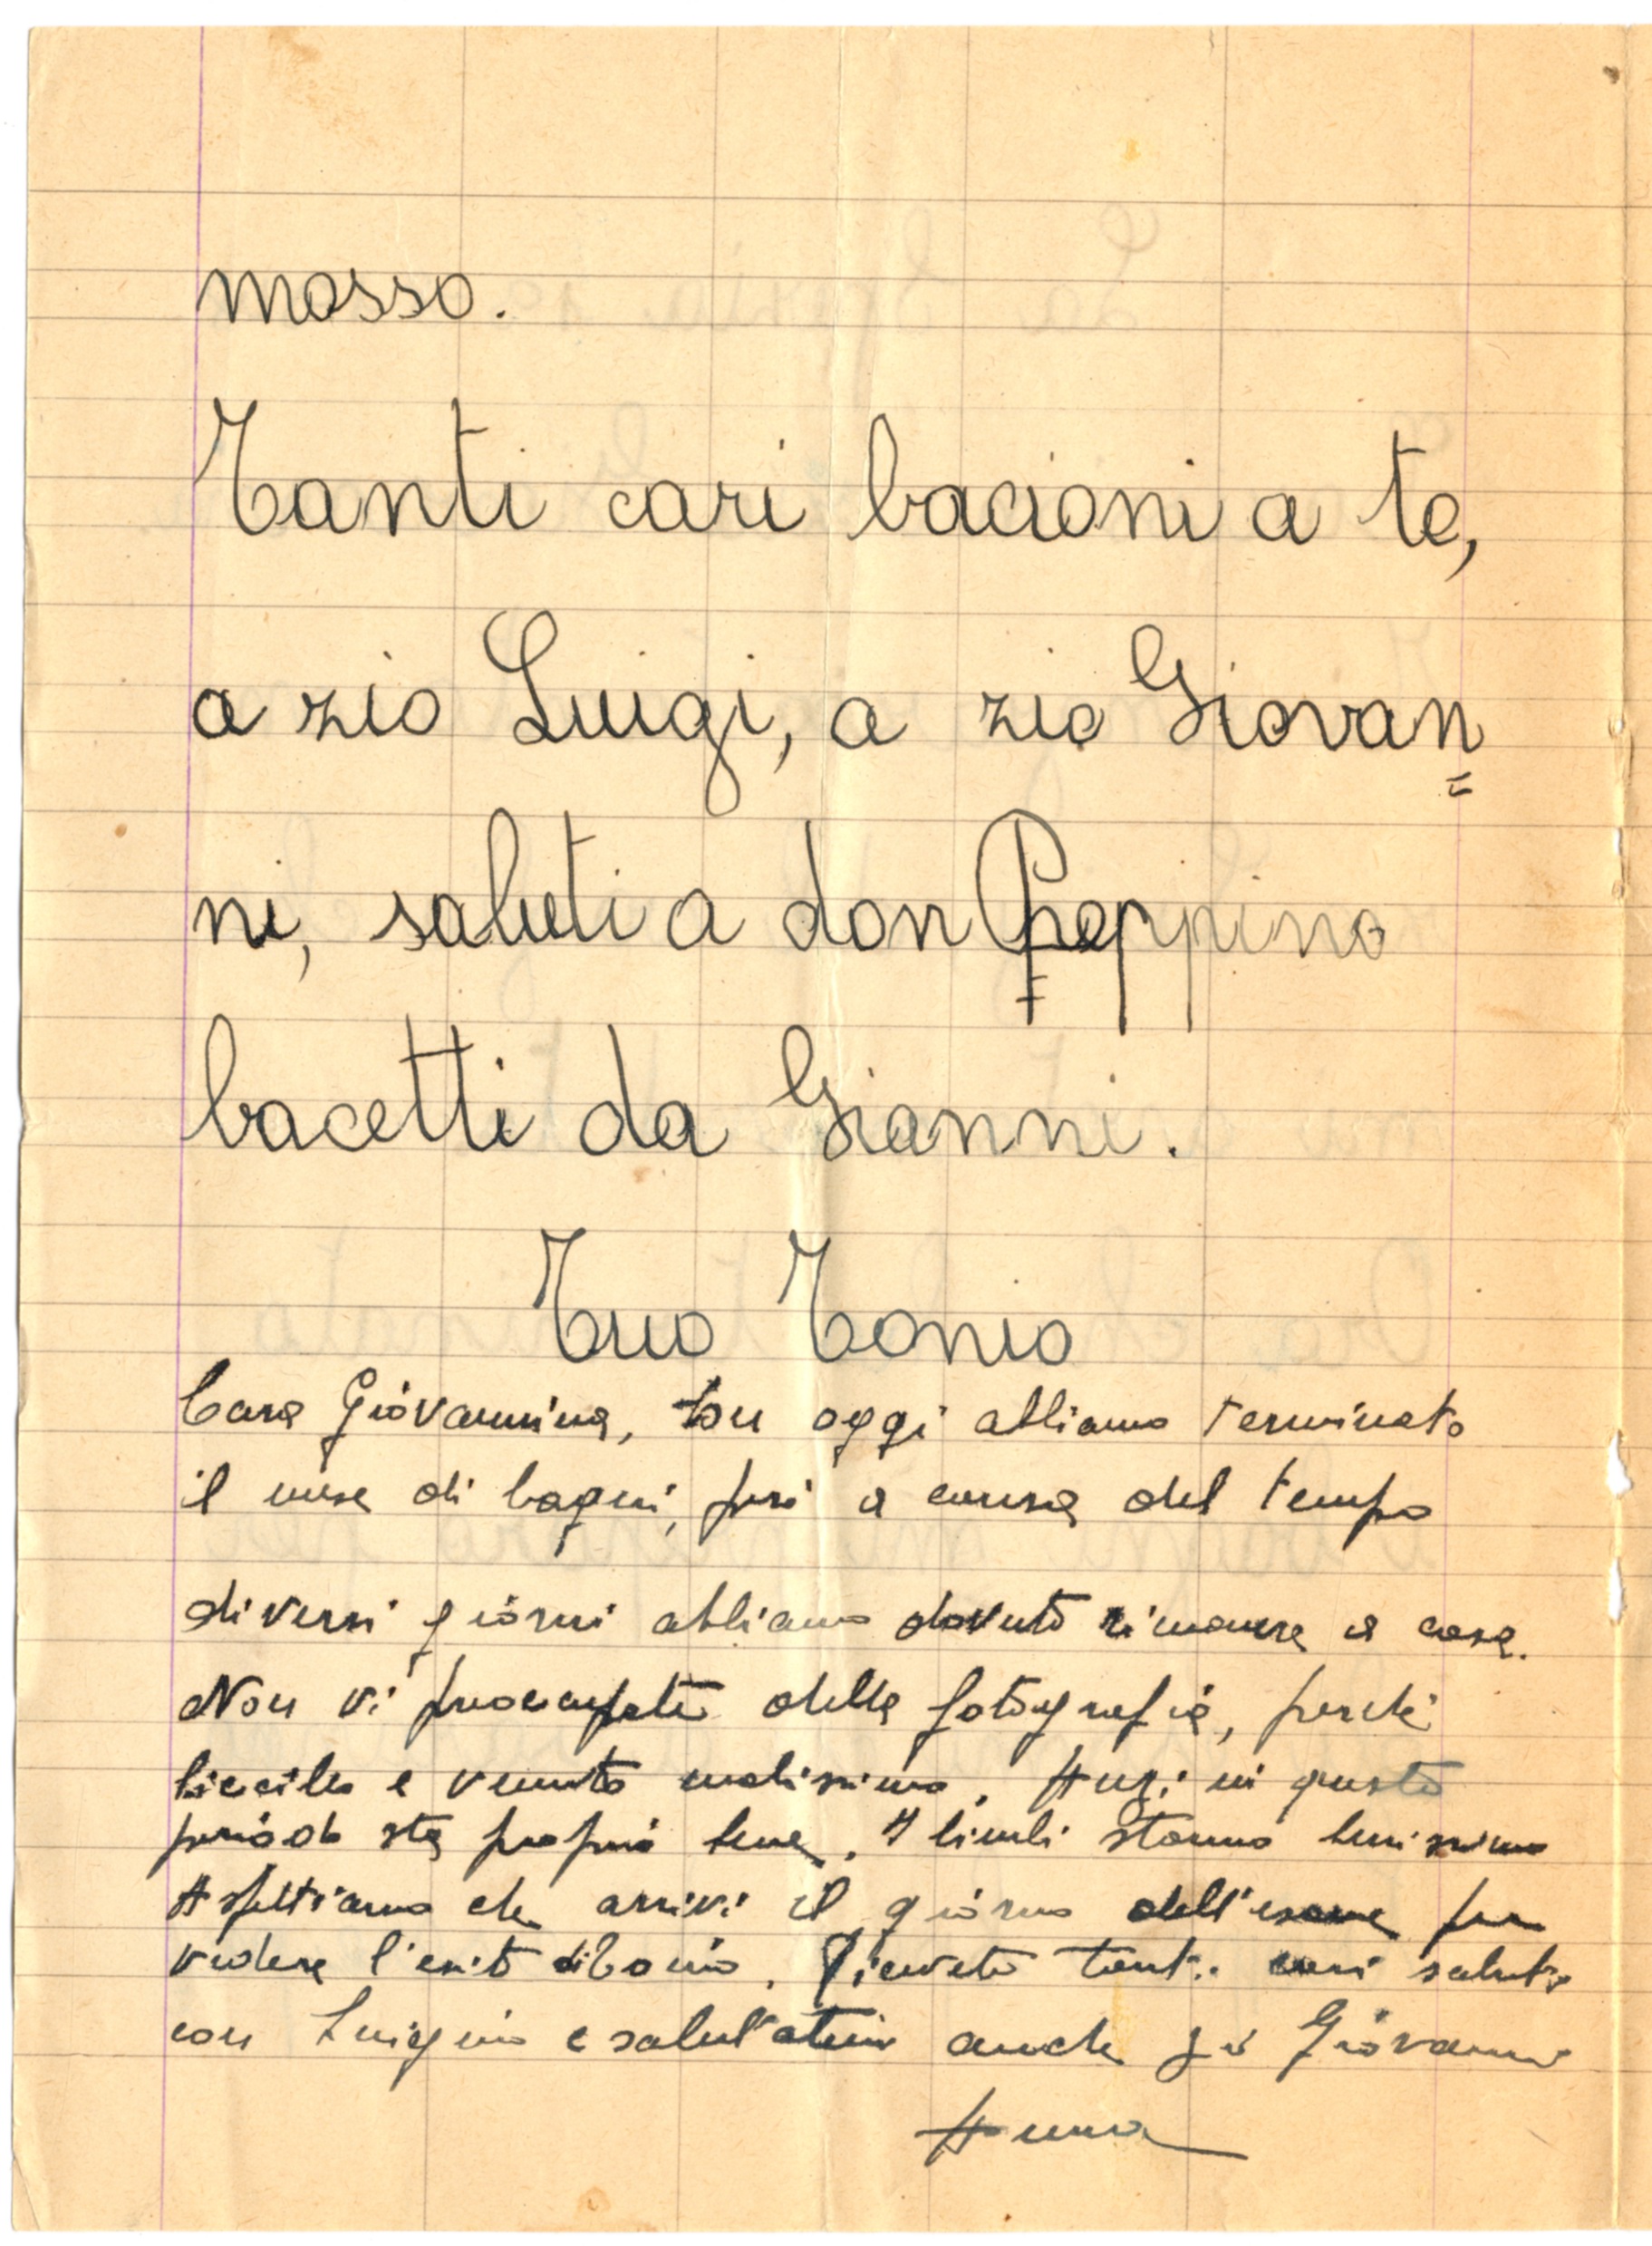 mosso.
Tanti cari bacioni a te,
a zio Luigi, a zio Giovan=
ni, saluti a don Peppino
bacetti da Gianni.
Tuo Tonio
Cara Giovannina, con oggi abbiamo terminato
il mese di bagni, però a causa del tempo
diversi giorni abbiamo dovuto rimanere a casa.
Non vi preoccupate della fotografia, perchè
è venuto malissimo. Anzi in questo
periodo sta proprio bene. I bimbi stanno benissimo
Aspettiamo che arrivi il giorno dell'esame per
vedere l'esito di Tonio. Ricevete tanti cari saluti
con Luigino e salutatemi anche zio Giovanni
Anna